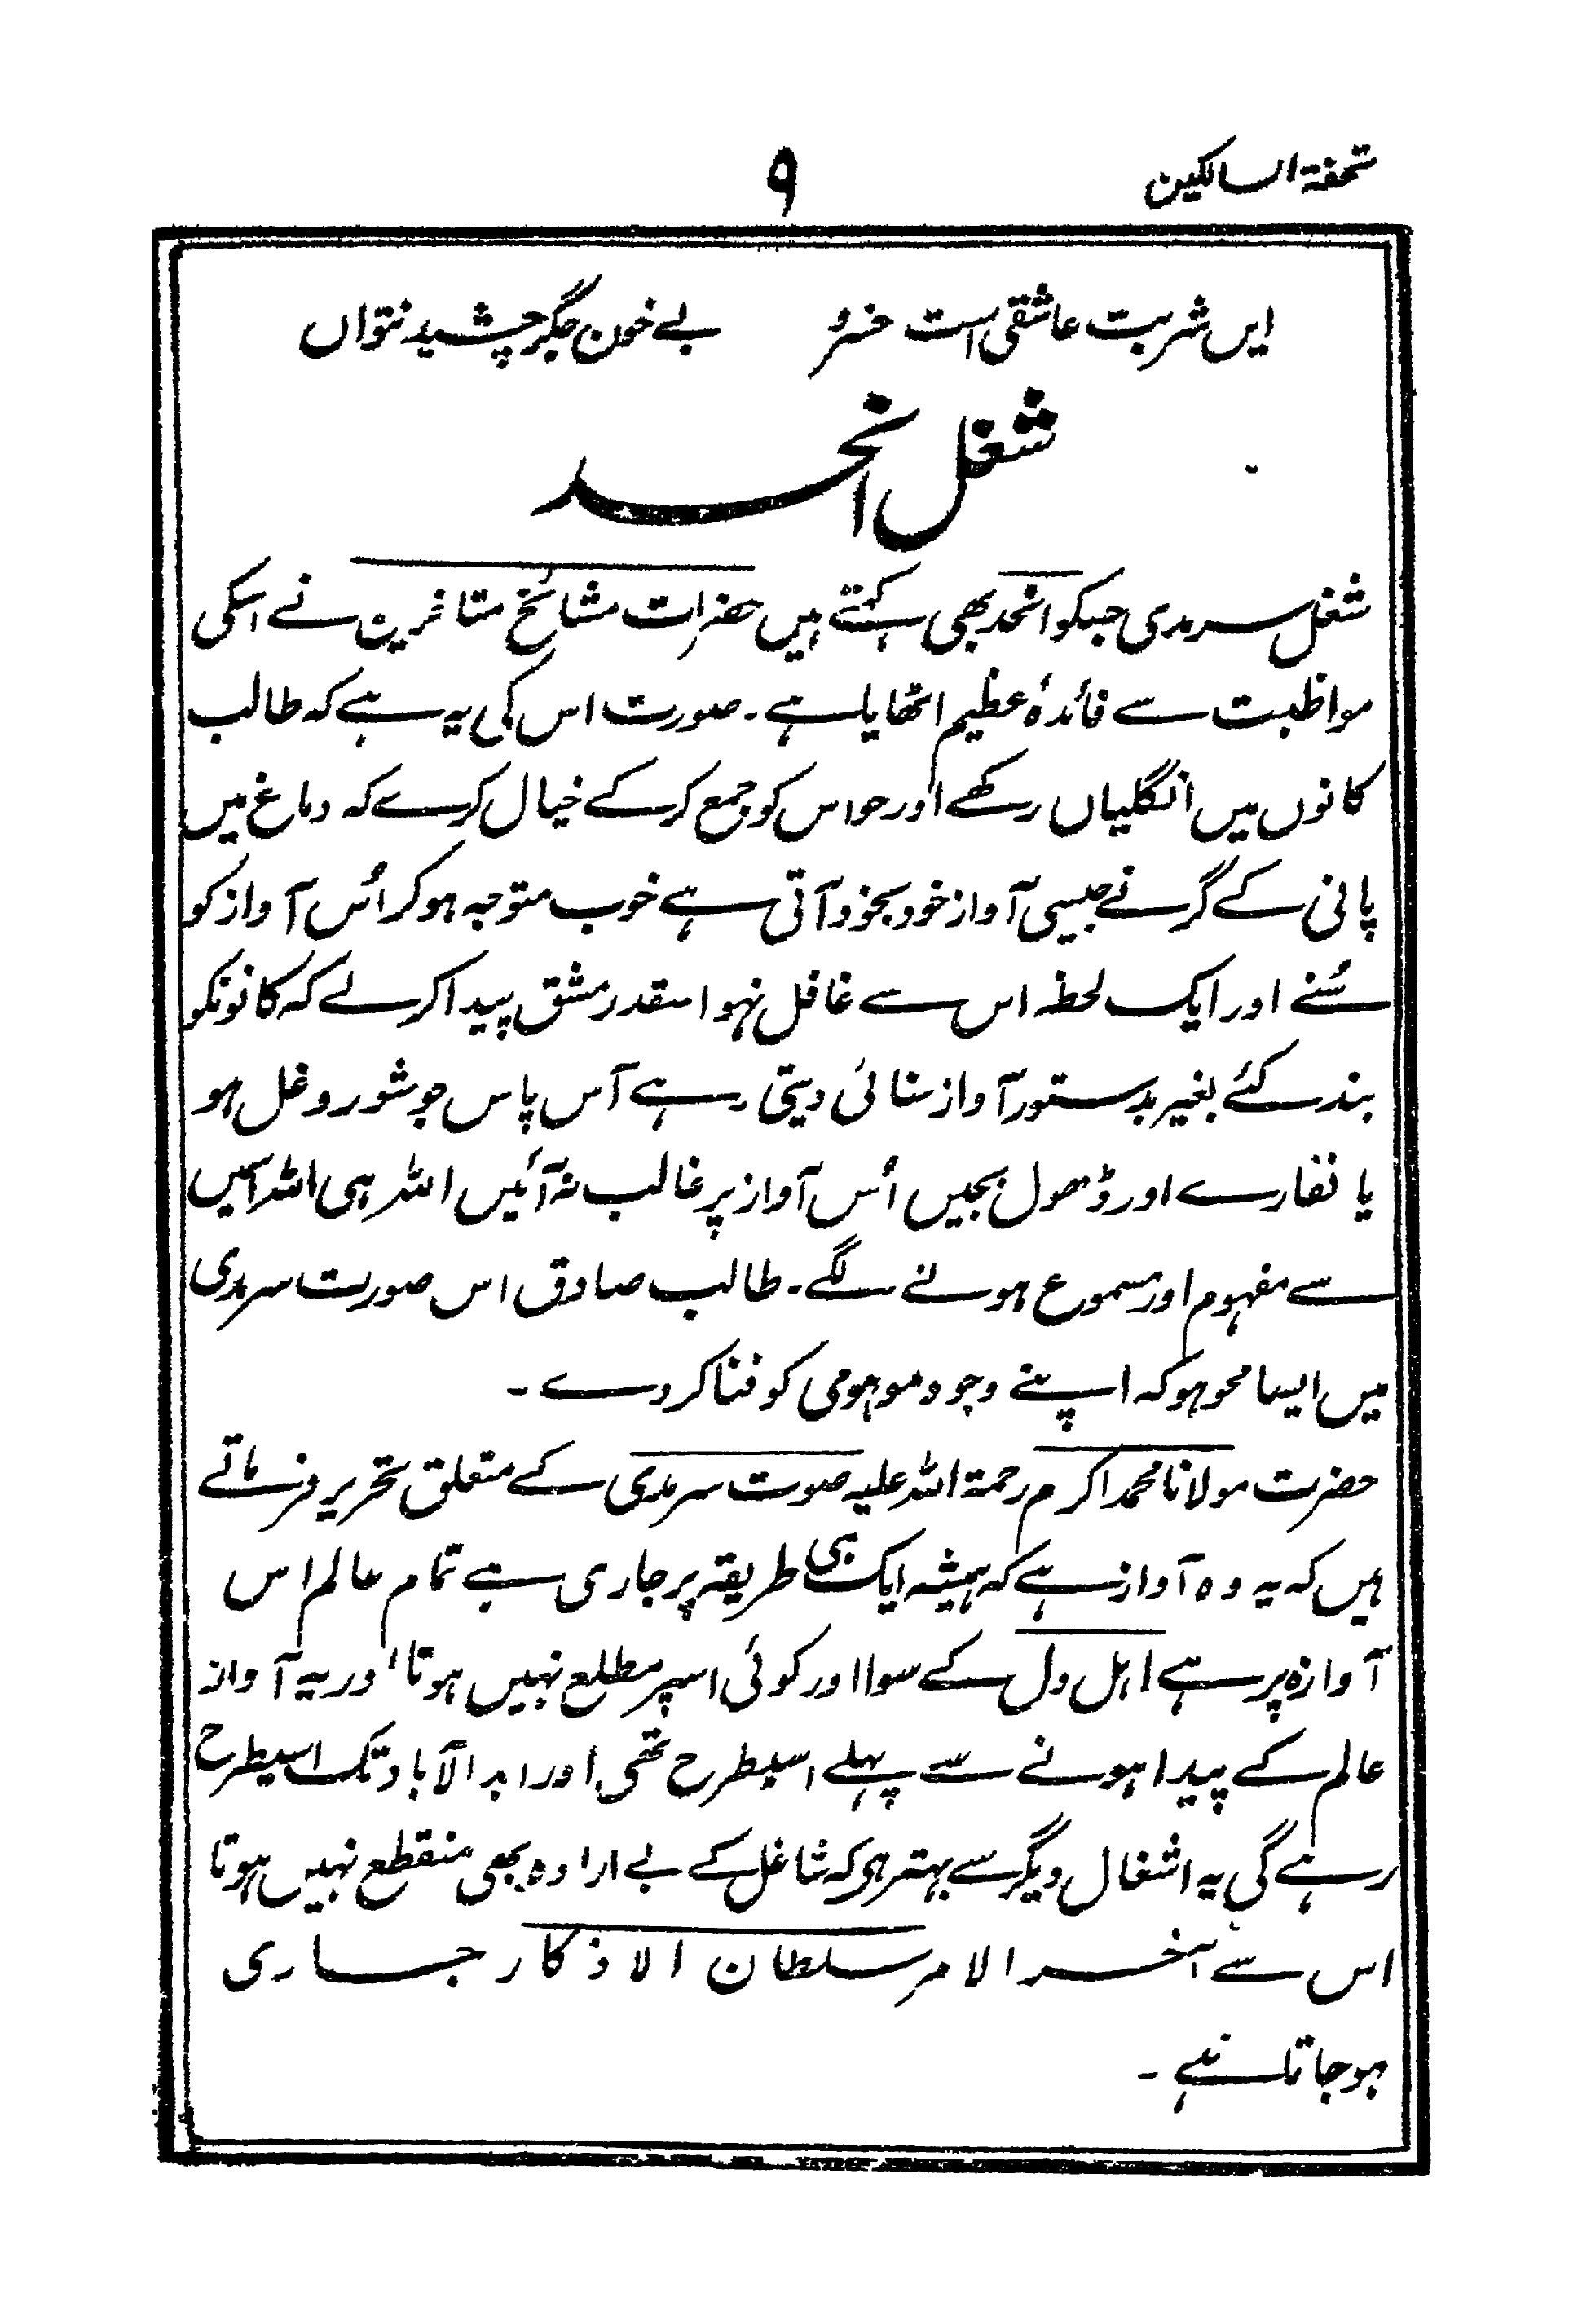 تحفۃ السالکین
۹
ایں شربت عاشقی است خسرو بے خون جگر چشید نتواں
شغل انحد
شغل سرمدی جسکو انحد بھی کہتے ہیں حضرات مشائخ متاخرین نے اسکی
مواظبت سے فائدۂ عظیم اٹھایا ہے۔ صورت اس کی یہ ہے کہ طالب
کانوں میں انگلیاں رکھے اور حواس کو جمع کر کے خیال کرے کہ دماغ میں
پانی کے گرنے جیسی آواز خود بخود آتی ہے خوب متوجہ ہو کر اُس آواز کو
سُنے اور ایک لحظہ اس سے غافل نہو اسقدر مشق پیدا کرلے کہ کانونکو
بند کئے بغیر بدستور آواز سنائی دیتی رہے آس پاس جو شور و غل ہو
یا نقارے اور ڈھول بجیں اُس آواز پر غالب نہ آئیں اللہ ہی اللہ اسمیں
سے مفہوم اور مسموع ہونے لگے۔ طالب صادق اس صورت سرمدی
میں ایسا محو ہو کہ اپنے وجود موہومی کو فنا کر دے۔
حضرت مولانا محمد اکرم رحمۃ اللہ علیہ صوت سرمدی کے متعلق تحریر فرماتے
ہیں کہ یہ وہ آواز ہے کہ ہمیشہ ایک ہی طریقہ پر جاری ہے تمام عالم اس
آوازہ پر ہے اہل دل کے سوا اور کوئی اسپر مطلع نہیں ہوتا اور یہ آواز
عالم کے پیدا ہونے سے پہلے اسیطرح تھی اور ابد الآباد تک اسیطرح
رہے گی یہ اشغال دیگر سے بہتر ہی کہ شاغل کے بے ارادہ بھی منقطع نہیں ہوتا
اس سے آخر الامر سلطان الاذکار جاری
ہو جاتا ہے۔